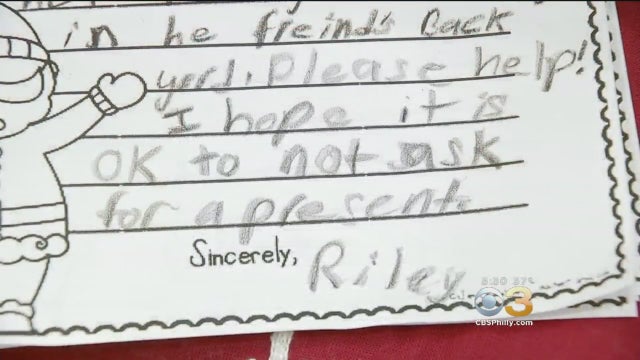 in he freind's Back
yerd. Please help!
I hope it is
OK to not ask
for a present.
Sincerely, Riley
5:30 37°
3
CBSPhilly.com